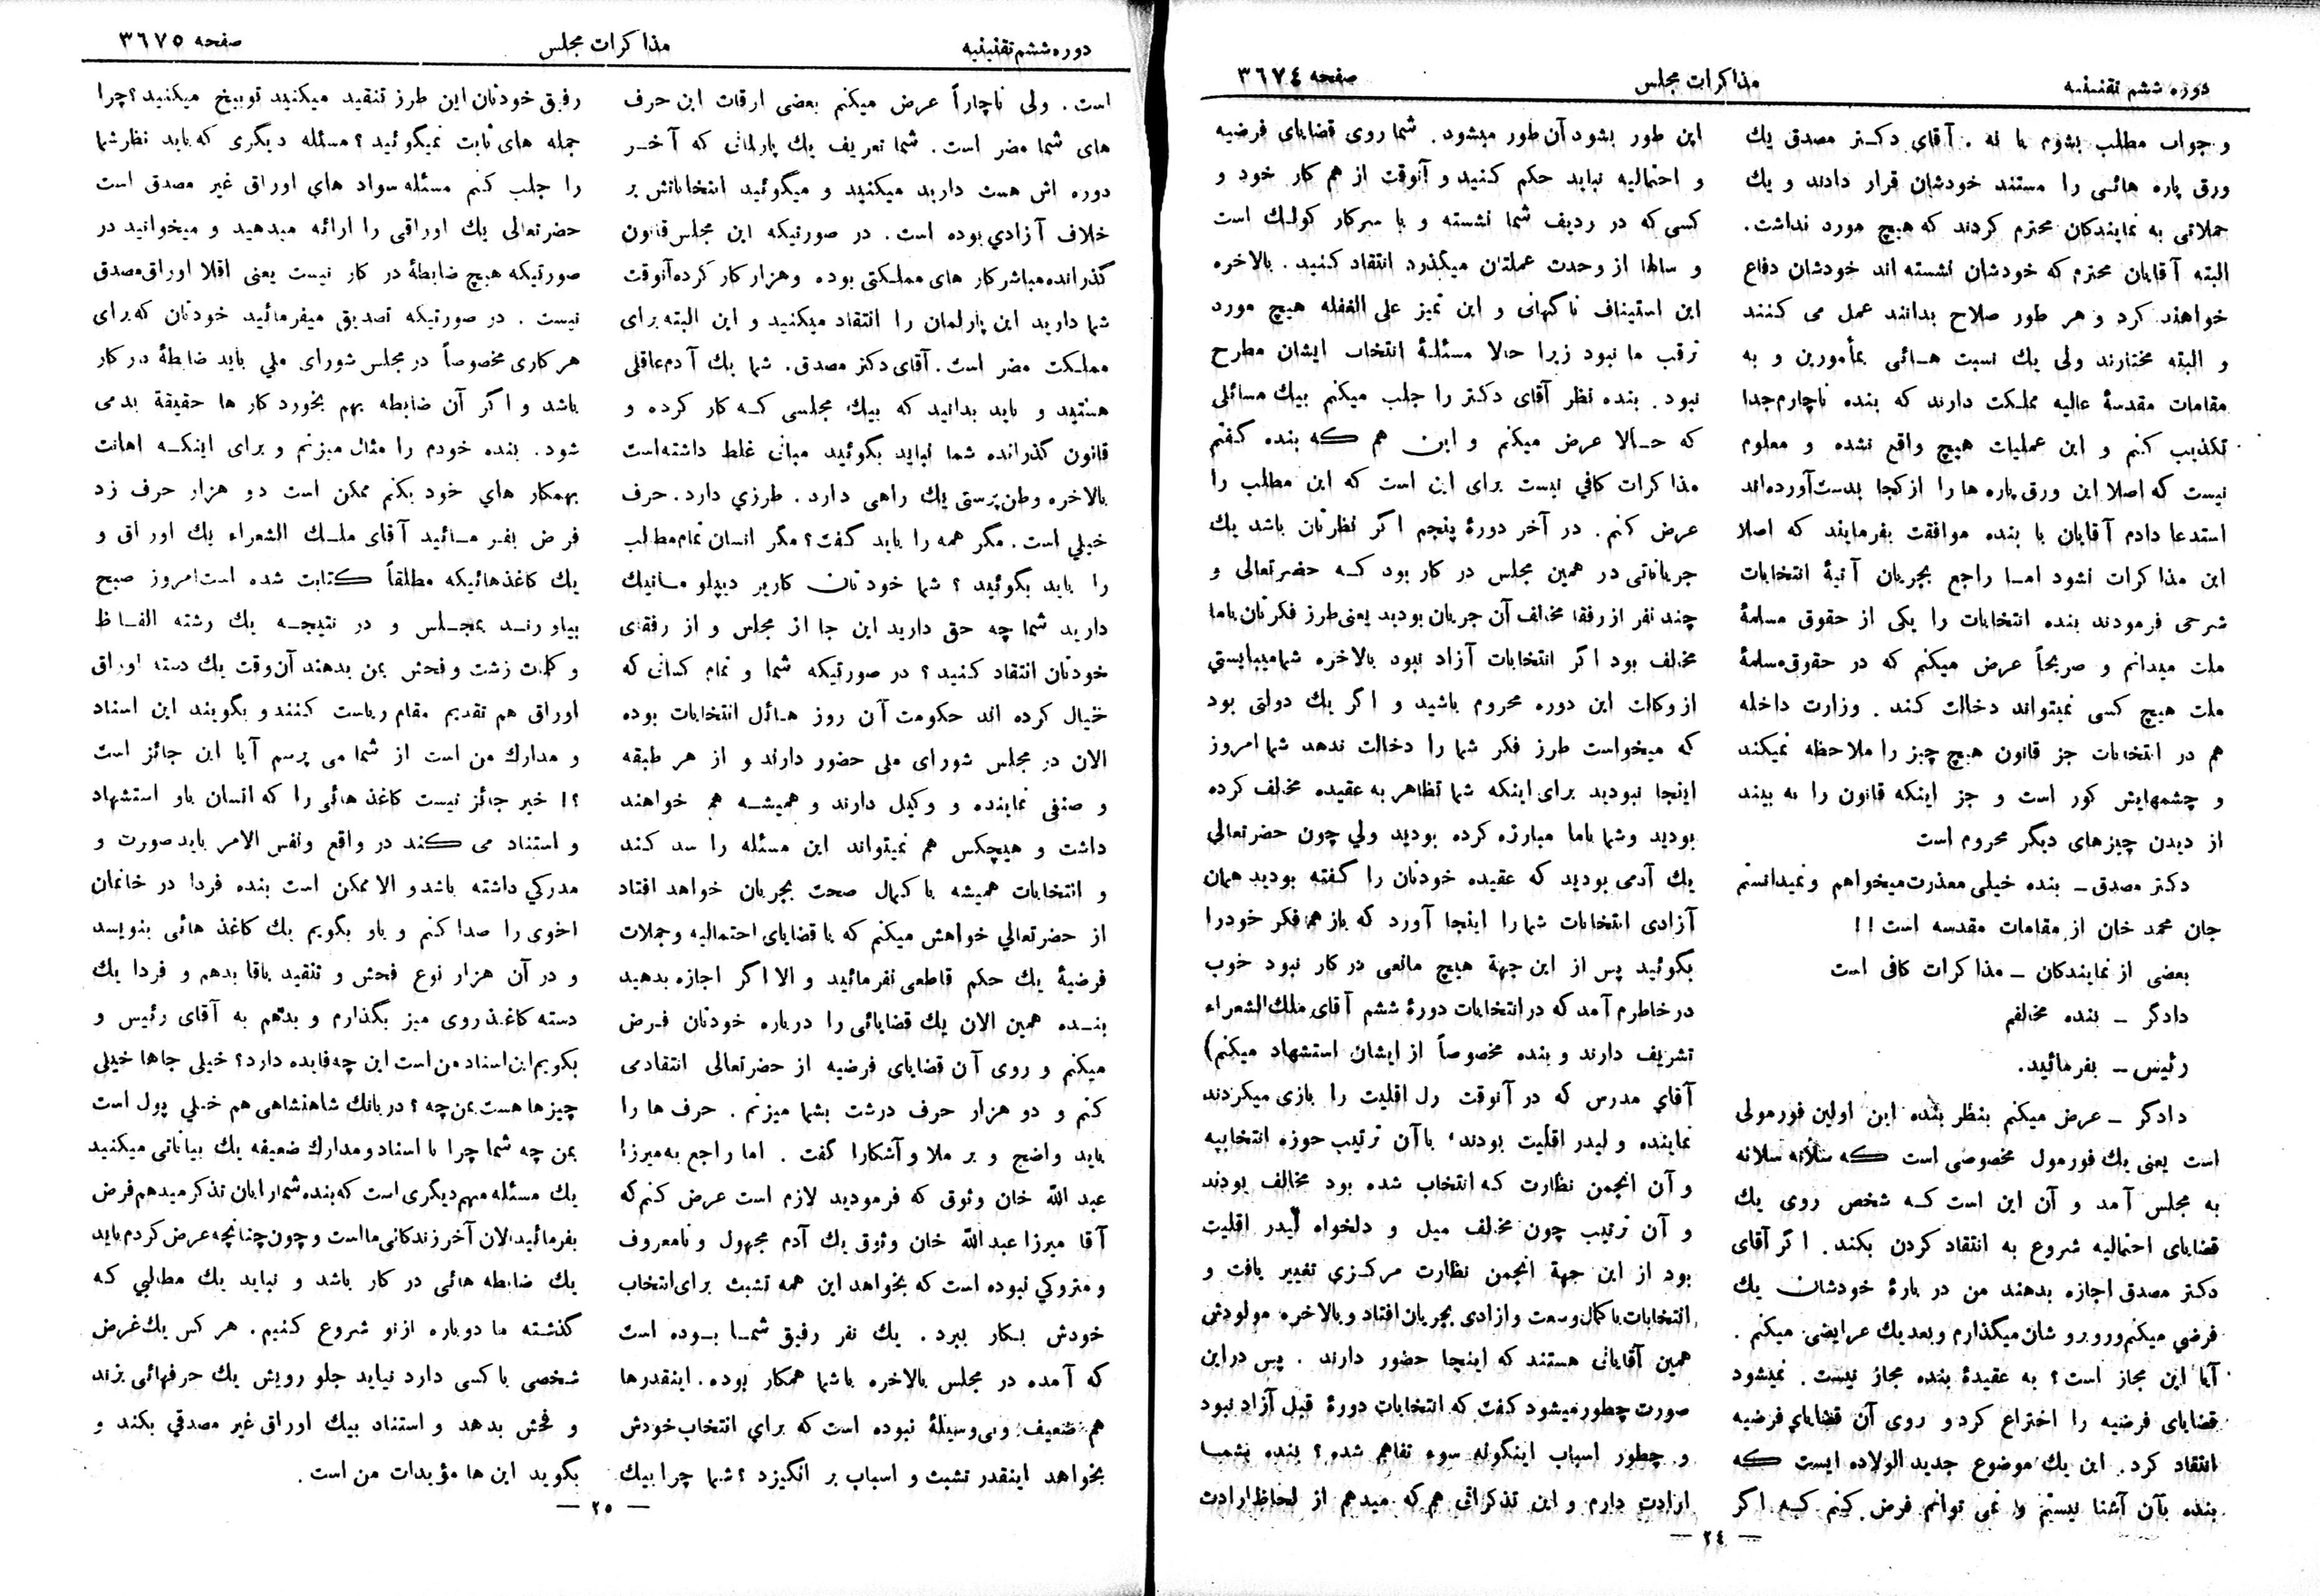 دوره ششم تقنینیه
مذاکرات مجلس
صفحه ٣٦٧٤
و جواب مطلب بشوم یا نه . آقای دکـتر مصدق یك
ورق پاره هائـی را مستند خودشان قرار دادند و یك
حملاتی به نمایندکان محترم کردند که هیچ مورد نداشت.
البته آقایان محترم که خودشان نشسته اند خودشان دفاع
خواهند کرد و هر طور صلاح بدانند عمل می کنند
و البته مختارند ولی یك نسبت هـائی بمأمورین و به
مقامات مقدسهٔ عالیه مملکت دارند که بنده ناچارم جدا
تکذیب کنم و این عملیات هیچ واقع نشده و معلوم
نیست که اصلا این ورق پاره ها را از کجا بدست آورده اند
استدعا دادم آقایان با بنده موافقت بفرمایند که اصلا
این مذاکرات نشود امـا راجع بجریان آتیهٔ انتخابات
شرحی فرمودند بنده انتخابات را یکی از حقوق مسلمهٔ
ملت میدانم و صریحاً عرض میکنم که در حقوق مسلمهٔ
ملت هیچ کسی نمیتواند دخالت کند . وزارت داخله
هم در انتخابات جز قانون هیچ چیز را ملاحظه نمیکند
و چشمهایش کور است و جز اینکه قانون را به بیند
از دیدن چیزهای دیگر محروم است
دکتر مصدق ـ بنده خیلی معذرت میخواهم و نمیدانستم
جان محمد خان از مقامات مقدسه است ! !
بعضی از نمایندکان ـ مذاکرات کافی است
دادگر ـ بنده مخالفم
رئیس ـ بفرمائید.
دادگر ـ عرض میکنم بنظر بنده این اولین فورمولی
است یعنی یك فورمول مخصوصی است کـه سلانه سلانه
به مجلس آمد و آن این است کـه شخص روی یك
قضایای احتمالیه شروع به انتقاد کردن بکند . اگر آقای
دکتر مصدق اجازه بدهند من در بارهٔ خودشان یك
فرضی میکنم و روبرو شان میگذارم و بعد یك عرایضی میکنم .
آیا این مجاز است ؟ به عقیدهٔ بنده مجاز نیست . نمیشود
قضایای فرضیه را اختراع کرد و روی آن قضایای فرضیه
انتقاد کرد . این یك موضوع جدید الولاده ایست که
بنده بآن آشنا نیستم و نمی توانم فرض کنم کـه اگر
این طور بشود آن طور میشود . شما روی قضایای فرضیه
و احتمالیه نباید حکم کنید و آنوقت از هم کار خود و
کسی که در ردیف شما نشسته و با سرکار کولك است
و سالها از وحدت عملتان میگذرد انتقاد کنید . بالاخره
این استیناف ناگهانی و این تمیز علی الغفله هیچ مورد
ترقب ما نبود زیرا حالا مسئلهٔ انتخاب ایشان مطرح
نبود . بنده نظر آقای دکتر را جلب میکنم بیك مسائلی
که حـالا عرض میکنم و این هم که بنده گفتم
مذاکرات کافی نیست برای این است که این مطلب را
عرض کنم . در آخر دورهٔ پنجم اگر نظرتان باشد یك
جریاناتی در همین مجلس در کار بود کـه حضرتعالی و
چند نفر از رفقا مخالف آن جریان بودید یعنی طرز فکرتان باما
مخالف بود اگر انتخابات آزاد نبود بالاخره شما میبایستي
از وکالت این دوره محروم باشید و اگر یك دولتی بود
که میخواست طرز فکر شما را دخالت ندهد شما امروز
اینجا نبودید برای اینکه شما تظاهر به عقیده مخالف کرده
بودید وشما باما مبارزه کرده بودید ولي چون حضرتعالي
یك آدمی بودید که عقیده خودتان را گفته بودید همان
آزادی انتخابات شما را اینجا آورد که باز هم فکر خود را
بگوئید پس از این جهة هیچ مانعی در کار نبود خوب
در خاطرم آمد که در انتخابات دورهٔ ششم آقای ملك الشعراء
تشریف دارند و بنده مخصوصاً از ایشان استشهاد میکنم)
آقاي مدرس که در آنوقت رل اقلیت را بازی میکردند
نماینده و لیدر اقلیت بودند ، با آن ترتیب حوزه انتخابیه
و آن انجمن نظارت کـه انتخاب شده بود مخالف بودند
و آن ترتیب چون مخالف میل و دلخواه لیدر اقلیت
بود از این جهة انجمن نظارت مرکـزي تغییر یافت و
انتخابات با کمال وسعت و ازادی بجریان افتاد و بالاخره مولودش
همین آقایانی هستند که اینجا حضور دارند . پس در این
صورت چطور میشود کفت که انتخابات دورهٔ قبل آزاد نبود
و چطور اسباب اینگونه سوء تفاهم شده ؟ بنده بشمـا
ارادت دارم و این تذکراتی هم که میدهم از لحاظ ارادت
ـ ٢٤ ـ
دوره ششم تقنینیه
مذاکرات مجلس
صفحه ٣٦٧٥
است . ولی ناچاراً عرض میکنم بعضی اوقات این حرف
های شما مضر است . شما تعریف یك پارلمانی که آخـر
دوره اش هست دارید میکنید و میگوئید انتخاباتش بر
خلاف آزادي بوده است . در صورتیکه این مجلس قانون
گذرانده مباشر کار های مملکتی بوده و هزار کار کرده آنوقت
شما دارید این پارلمان را انتقاد میکنید و این البته برای
مملکت مضر است . آقای دکتر مصدق . شما یك آدم عاقلی
هستید و باید بدانید که بیك مجلسی کـه کار کرده و
قانون گذرانده شما نباید بگوئید مبانی غلط داشته است
بالاخره وطن پرستی یك راهی دارد . طرزي دارد . حرف
خیلي است . مگر همه را باید گفت ؟ مگر انسان تمام مطالب
را باید بگوئید ؟ شما خودتان کاریر دیپلو ماتیك
دارید شما چه حق دارید این جا از مجلس و از رفقای
خودتان انتقاد کنید ؟ در صورتیکه شما و تمام کسانی که
خیال کرده اند حکومت آن روز هـائل انتخابات بوده
الان در مجلس شورای ملی حضور دارند و از هر طبقه
و صنفی نماینده و وکیل دارند و همیشـه هم خواهند
داشت و هیچکس هم نمیتواند این مسئله را سد کند
و انتخابات همیشه با کمال صحت بجریان خواهد افتاد
از حضرتعالي خواهش میکنم که با قضایای احتمالیه و جملات
فرضیهٔ یك حکم قاطعی نفرمائید و الا اگر اجازه بدهید
بنـده همین الان یك قضایائی را درباره خودتان فـرض
میکنم و روی آن قضایای فرضیه از حضرتعالی انتقاد می
کنم و دو هزار حرف درشت بشما میزنم . حرف ها را
باید واضح و بر ملا و آشکارا گفت . اما راجع به میرزا
عبد الله خان وثوق که فرمودید لازم است عرض کنم که
آقا میرزا عبد الله خان وثوق یك آدم مجهول و نامعروف
و متروکي نبوده است که بخواهد این همه تشبث برای انتخاب
خودش بـکار ببرد . یك نفر رفیق شمـا بـوده است
که آمده در مجلس بالاخره با شما همکار بوده . اینقدرها
هم ضعیف و بی وسیلهٔ نبوده است که براي انتخاب خودش
بخواهد اینقدر تشبث و اسباب بر انگیزد ؟ شما چرا بیك
رفیق خودتان این طرز تنقید میکنید توبیخ میکنید ؟ چرا
جمله های ثابت نمیگوئید ؟ مسئله دیگری که باید نظر شما
را جلب کنم مسئله سواد های اوراق غیر مصدق است
حضرتعالی یك اوراقی را ارائه میدهید و میخوانید در
صورتیکه هیچ ضابطهٔ در کار نیست یعنی اقلا اوراق مصدق
نیست . در صورتیکه تصدیق میفرمائید خودتان که برای
هر کاری مخصوصاً در مجلس شورای ملي باید ضابطهٔ در کار
باشد و اگر آن ضابطه بهم بخورد کار ها حقیقة بد می
شود . بنده خودم را مثال میزنم و برای اینکـه اهانت
بهمکار هاي خود بکنم ممکن است دو هزار حرف زد
فرض بفـر مـائید آقای ملـك الشعراء یك اوراقی و
یك کاغذهائیکه مطلقاً کتابت شده است امروز صبح
بیاورنـد بمجـلس و در نتیجـه یك رشته الفـاظ
و کلمات زشت و فحش بمن بدهند آن وقت یك دسته اوراق
اوراق هم تقدیم مقام ریاست کنند و بگویند این اسناد
و مدارك من است از شما می پرسم آیا این جائز است
؟! خیر جائز نیست کاغذ هائی را که انسان باو استشهاد
و استناد می کند در واقع ونفس الامر باید صورت و
مدرکي داشته باشد و الا ممکن است بنده فردا در خانمان
اخوی را صدا کنم و باو بگویم یك کاغذ هائی بنویسد
و در آن هزار نوع فحش و تنقید باقا بدهم و فردا یك
دسته کاغـذ روی میز بگذارم و بدهم به آقای رئیس و
بکویم این اسناد من است این چه فایده دارد ؟ خیلی جاها خیلی
چیزها هست بمن چه ؟ در بانك شاهنشاهی هم خیلي پول است
بمن چه شما چرا با اسناد و مدارك ضعیفه یك بیاناتی میکنید
یك مسئله مهم دیگری است که بنده شما را بان تذکر میدهم فرض
بفرمائید الان آخر زندکانی ما است و چون چنانچه عرض کردم باید
یك ضابطه هائی در کار باشد و نباید یك مطالبي که
گذشته ما دوباره ازنو شروع کنیم . هر کس یك غرض
شخصی با کسی دارد نیاید جلو رویش یك حرفهائی بزند
و فحش بدهد و استناد بیك اوراق غیر مصدقي بکند و
بگوید این ها مؤیدات من است .
ـ ٢٥ ـ